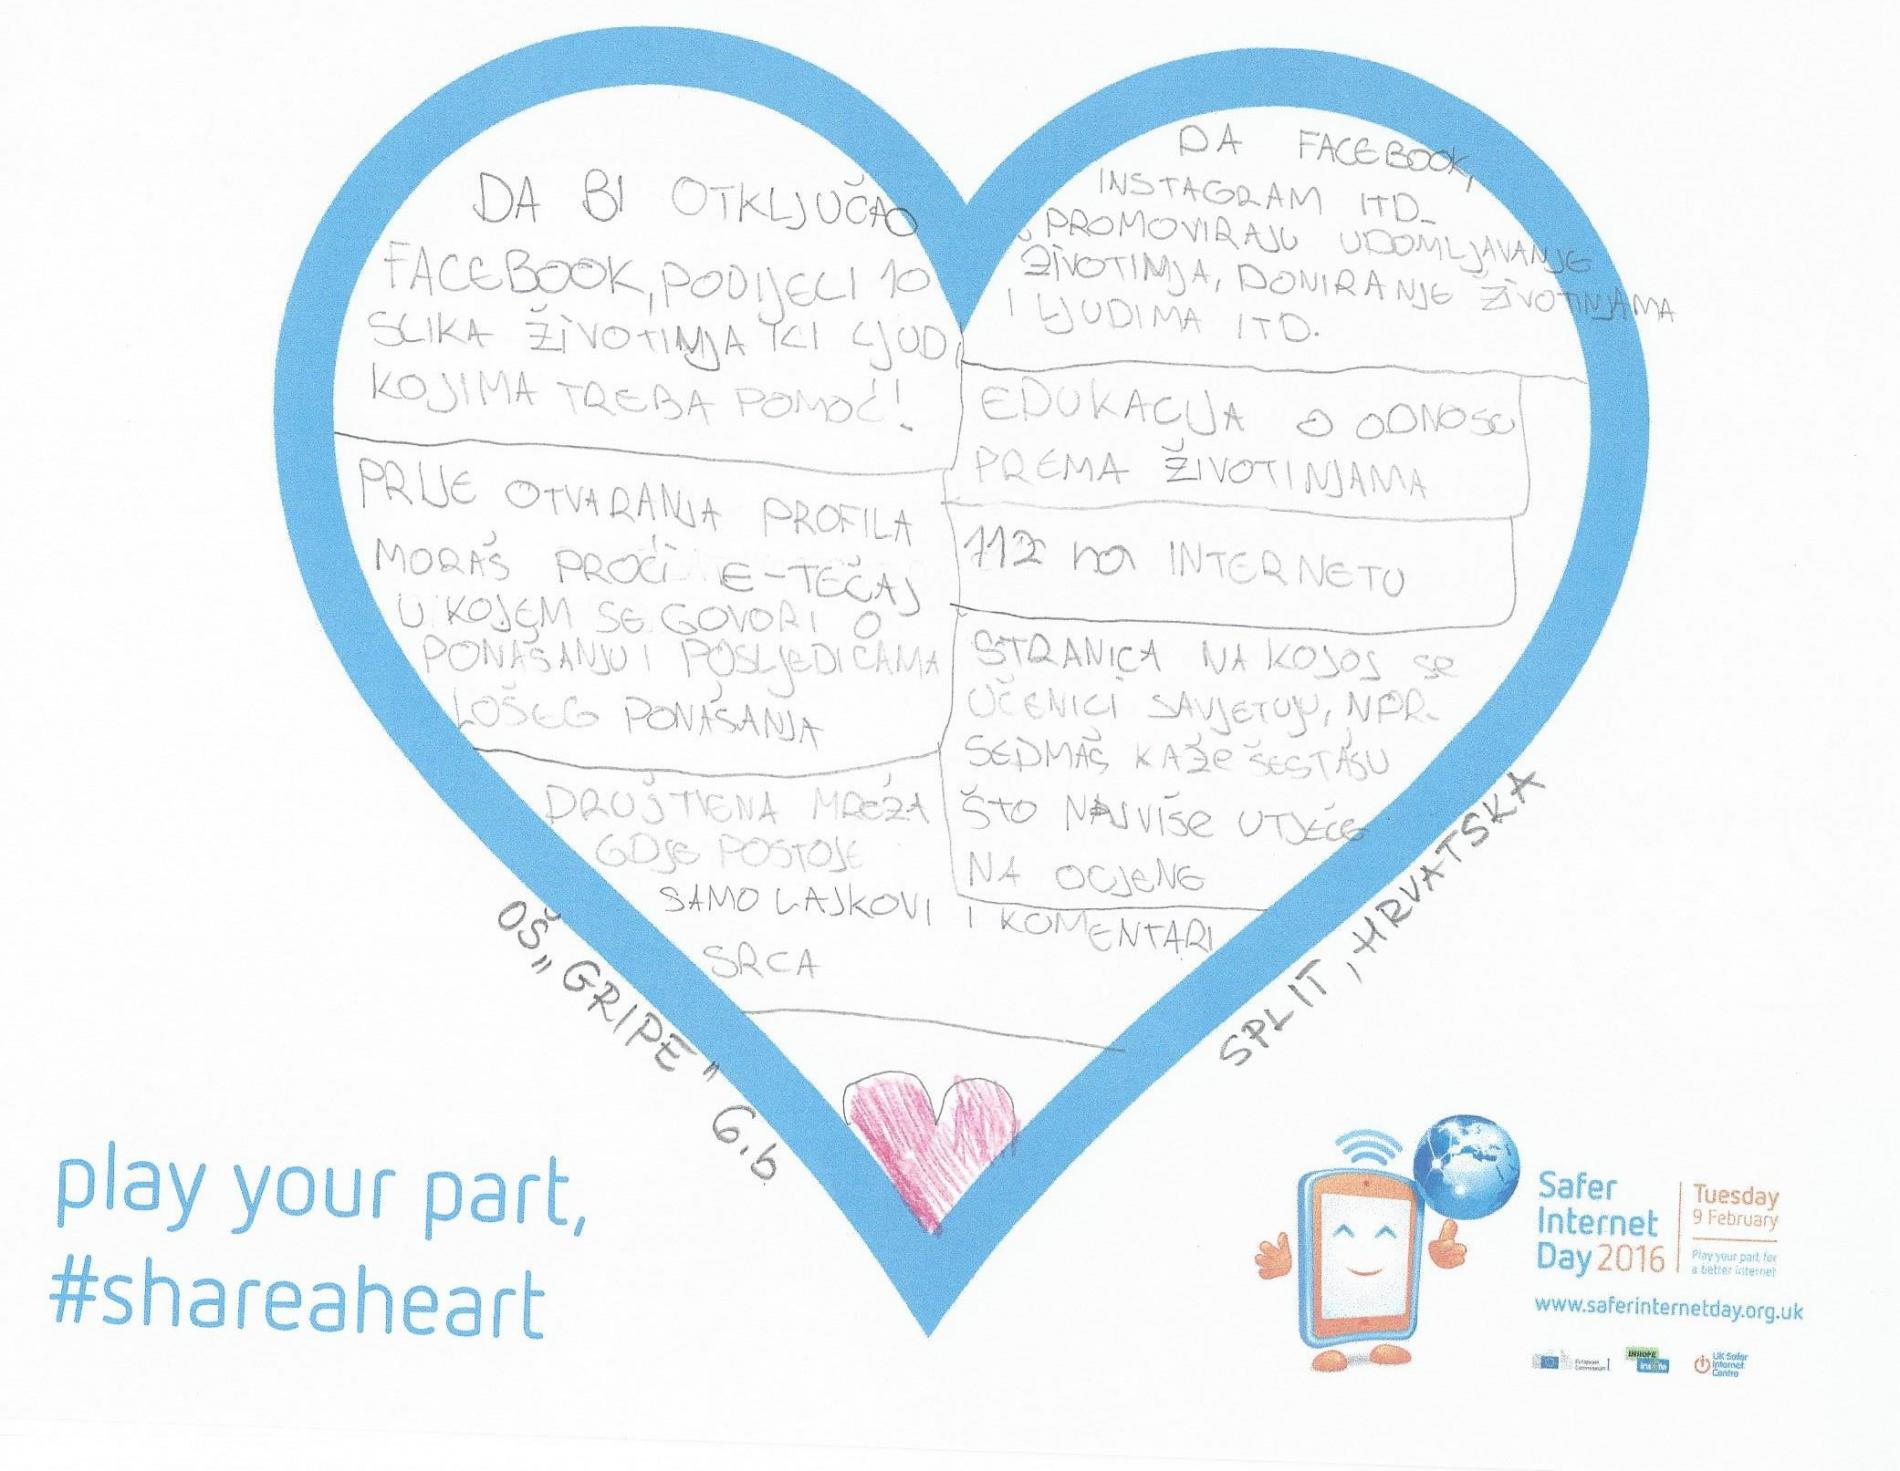 DA BI OTKLJUČAO
FACEBOOK, PODIJELI 10
SLIKA ŽIVOTINJA ILI LJUDI
KOJIMA TREBA POMOĆ!
PRIJE OTVARANJA PROFILA
MORAŠ PROĆI E-TEČAJ
U KOJEM SE GOVORI O
PONAŠANJU I POSLJEDICAMA
LOŠEG PONAŠANJA
DRUŠTVENA MREŽA
GDJE POSTOJE
SAMO LAJKOVI I KOMENTARI
SRCA
DA FACEBOOK,
INSTAGRAM ITD.
PROMOVIRAJU UDOMLJAVANJE
ŽIVOTINJA, DONIRANJE ŽIVOTINJAMA
I LJUDIMA ITD.
EDUKACIJA O ODNOSU
PREMA ŽIVOTINJAMA
112 na INTERNETU
STRANICA NA KOJOJ se
UČENICI SAVJETUJU, NPR.
SEDMAŠ KAŽe ŠESTAŠU
ŠTO NAJVIŠe UTJEČE
NA OCJENE
OŠ „GRIPE" 6.b
SPLIT, HRVATSKA
play your part,
#shareaheart
Safer
Internet
Day 2016
Tuesday
9 February
Play your part for
a better internet
www.saferinternetday.org.uk
European
Commission
INHOPE
insafe
UK Safer
Internet
Centre